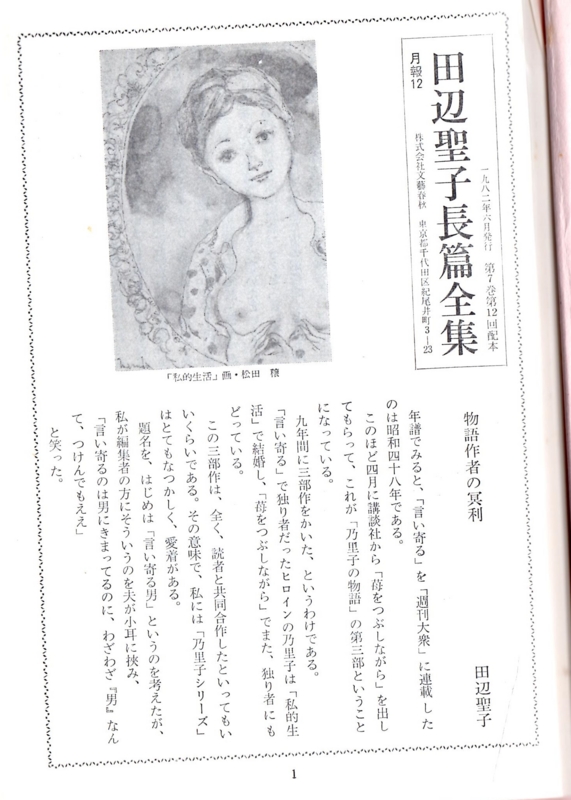 田辺聖子長篇全集
月報12
一九八二年六月発行 第7巻第12回配本
株式会社文藝春秋 東京都千代田区紀尾井町3―23
「私的生活」画・松田 穰
物語作者の冥利
田辺聖子
年譜でみると、「言い寄る」を「週刊大衆」に連載した
のは昭和四十八年である。
このほど四月に講談社から「苺をつぶしながら」を出し
てもらって、これが「乃里子の物語」の第三部ということ
になっている。
九年間に三部作をかいた、というわけである。
「言い寄る」で独り者だったヒロインの乃里子は「私的生
活」で結婚し、「苺をつぶしながら」でまた、独り者にも
どっている。
この三部作は、全く、読者と共同合作したといってもい
いくらいである。その意味で、私には「乃里子シリーズ」
はとてもなつかしく、愛着がある。
題名を、はじめは「言い寄る男」というのを考えたが、
私が編集者の方にそういうのを夫が小耳に挟み、
「言い寄るのは男にきまってるのに、わざわざ『男』なん
て、つけんでもええ」
と笑った。
1